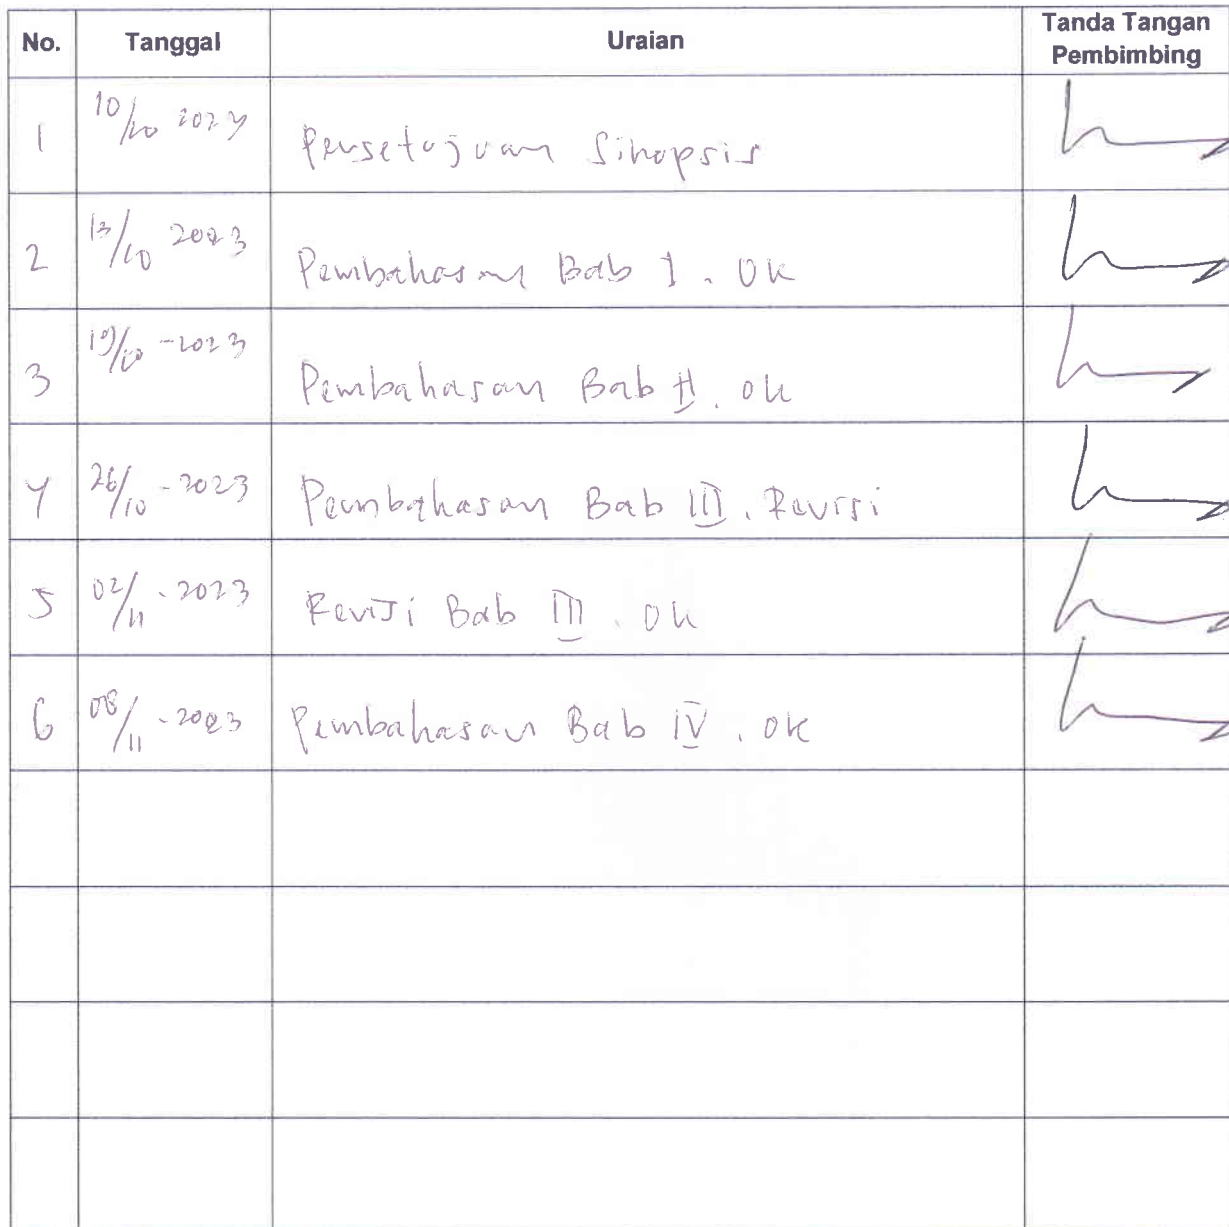 No. Tanggal Uraian Tanda Tangan Pembimbing
1 10/10 2023 Persetujuan Sinopsis
2 13/10 2023 Pembahasan Bab I. Ok
3 19/10 - 2023 Pembahasan Bab II. ok
4 26/10 - 2023 Pembahasan Bab III. Revisi
5 02/11 - 2023 Revisi Bab III. Ok
6 08/11 - 2023 Pembahasan Bab IV. ok